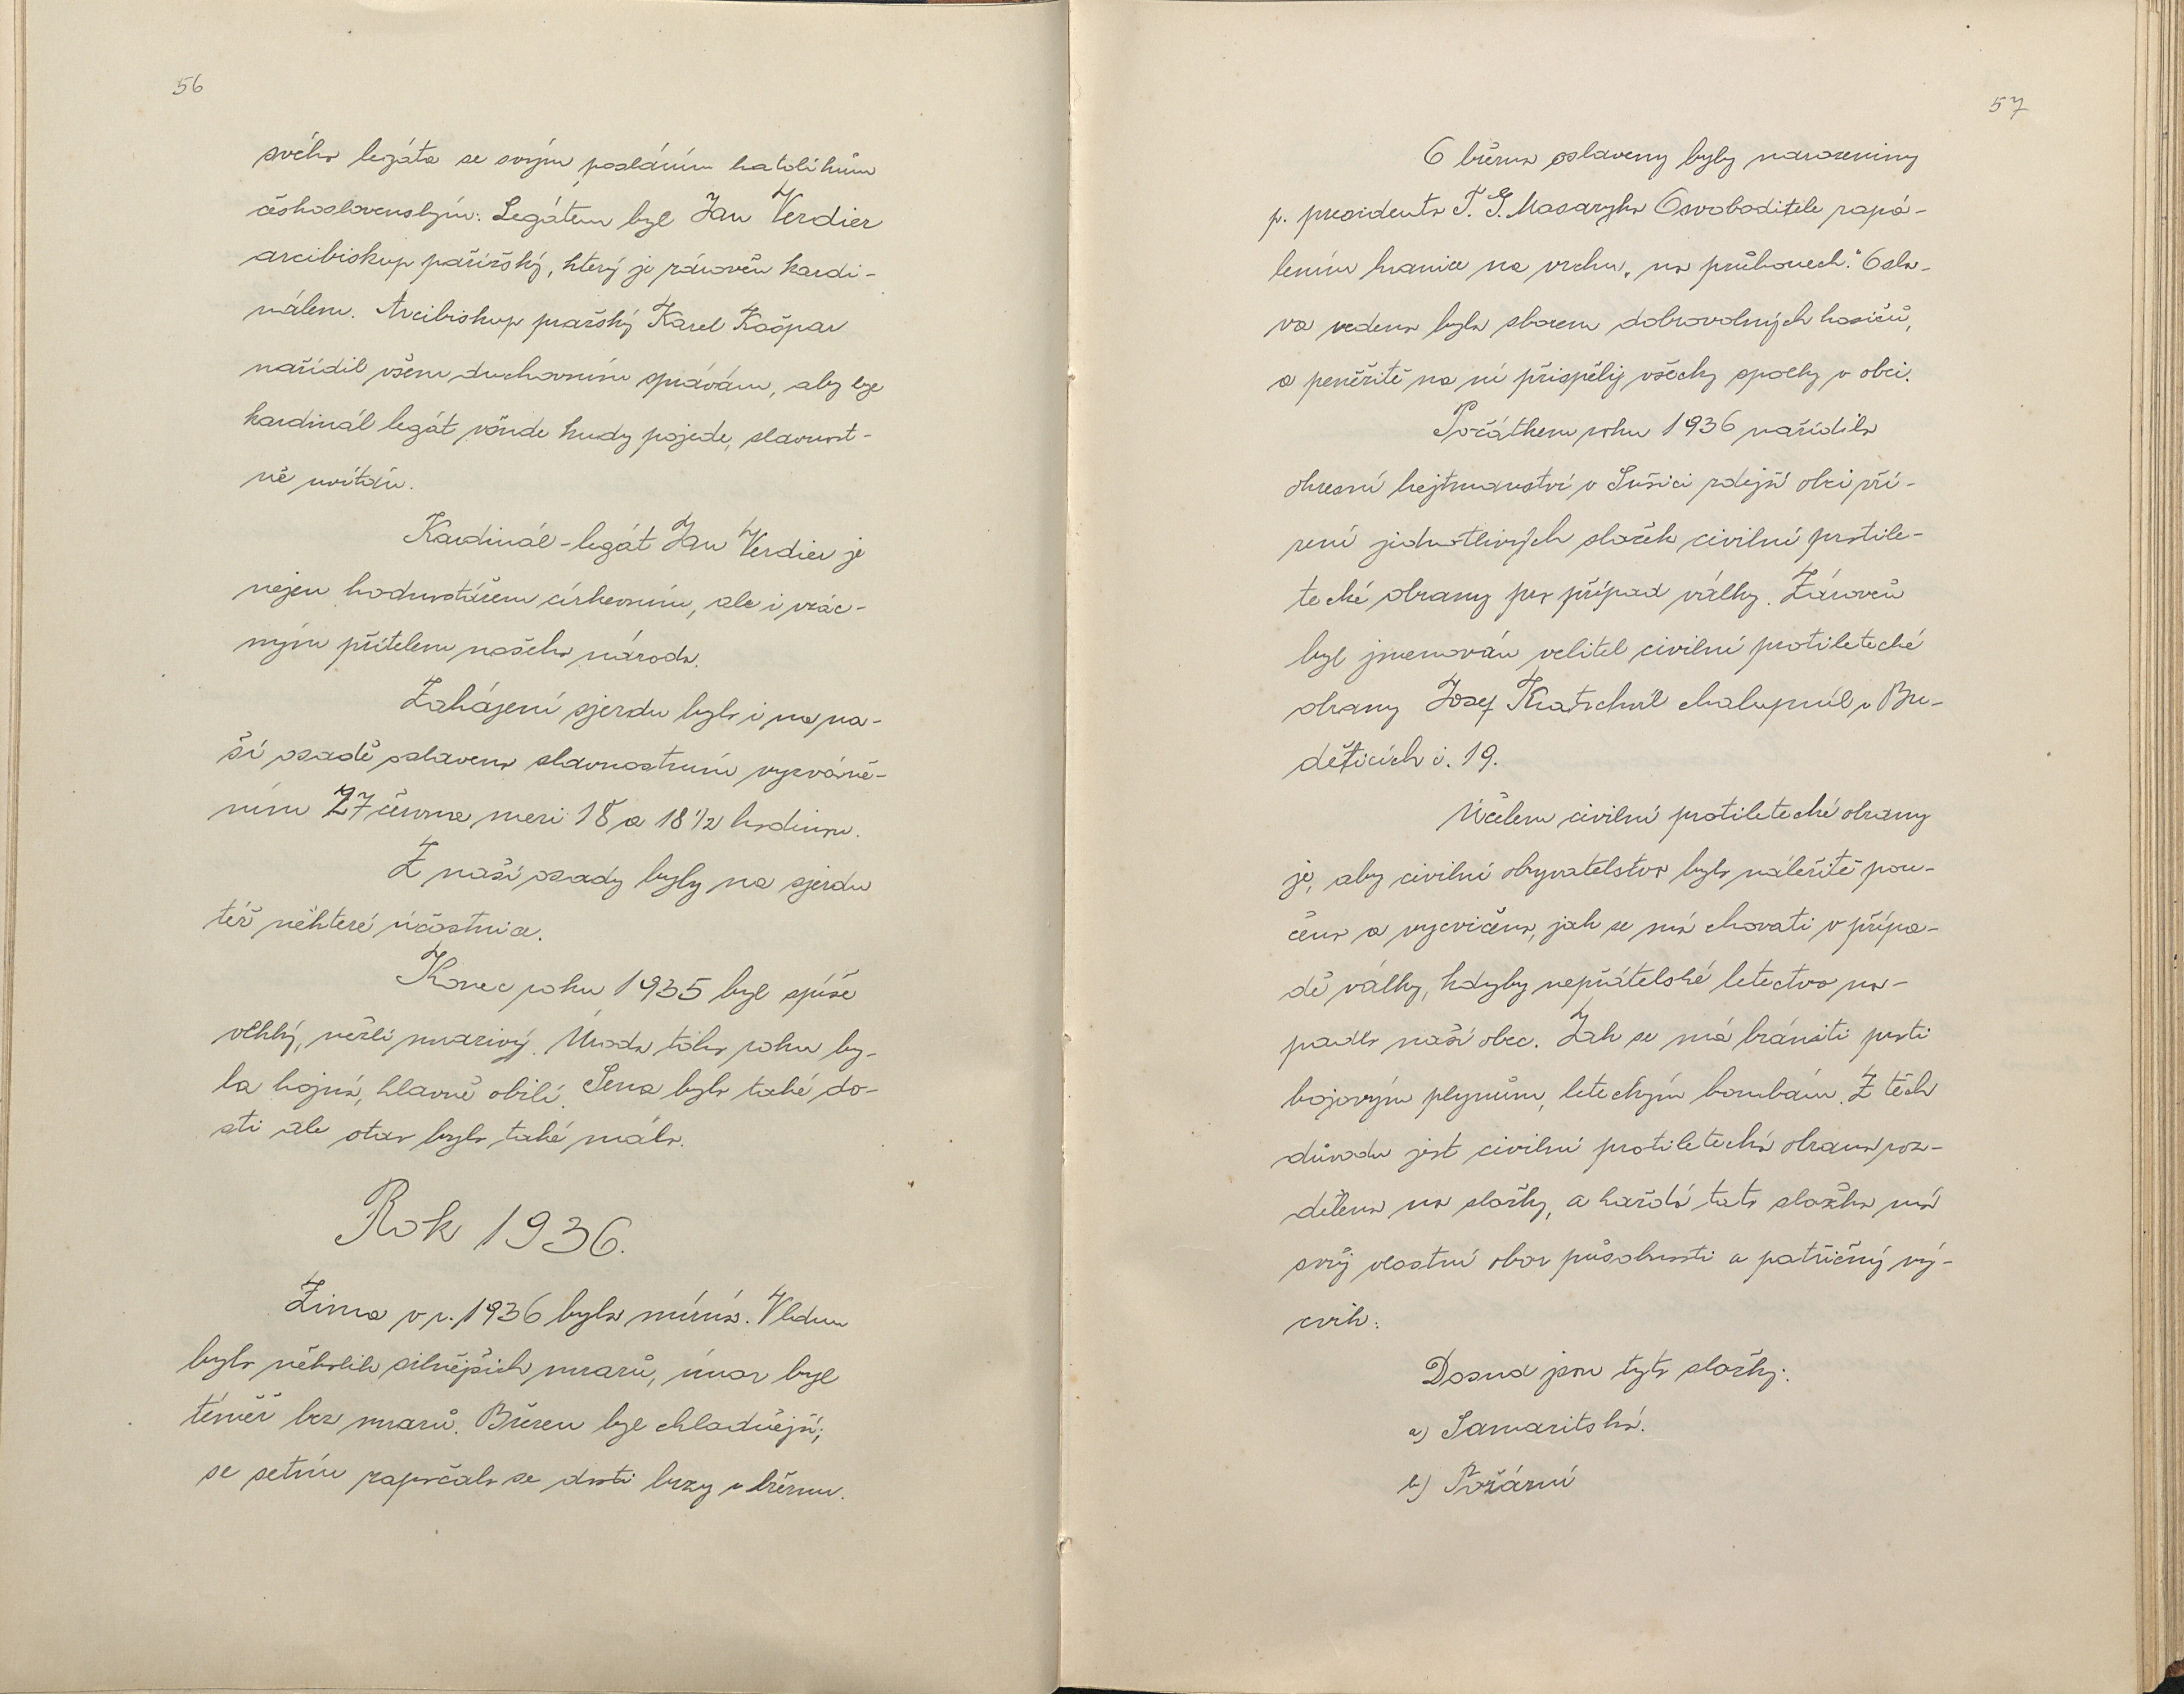 56
svého legáta se svým posláním katolíkům
československým. Legátem byl Jan Verdier
arcibiskup pařížský, který je zároveň kardi-
nálem. Arcibiskup pražský Karel Kašpar
nařídil všem duchovním správám, aby byl
kardinál legát všude kudy pojede, slavnost-
ně uvítán.
Kardinál-legát Jan Verdier je
nejen hodnostářem církevním, ale i vzác-
ným přítelem našeho národa.
Zahájení sjezdu bylo i na na-
ší osadě oslaveno slavnostním vyzváně-
ním 27 června mezi 18 a 18 1/2 hodinou.
Z naší osady byly na sjezdu
též některé účastnice.
Konec roku 1935 byl spíše
vlhký, nežli mrazivý. Úroda toho roku by-
la hojná, hlavně obilí. Sena bylo také do-
sti ale otav bylo také málo.
Rok 1936.
Zima v r. 1936 byla mírná. V lednu
bylo několik silnějších mrazů, únor byl
téměř bez mrazů. Březen byl chladnější;
se setím započalo se dosti brzy v březnu.
57
6 března oslaveny byly narozeniny
p. presidenta T. G. Masaryka Osvoboditele zapá-
lením hranice na vrchu „na průhonech." Osla-
va vedena byla sborem dobrovolných hasičů,
a peněžitě na ní přispěly všecky spolky v obci.
Počátkem roku 1936 nařídilo
okresní hejtmanství v Sušici zdejší obci zří-
zení jednotlivých složek civilní protile-
tecké obrany pro případ války. Zároveň
byl jmenován velitel civilní protiletecké
obrany Josef Kratochvíl chalupník v Bu-
děticích č. 19.
Účelem civilní protiletecké obrany
je, aby civilní obyvatelstvo bylo náležitě pou-
čeno a vycvičeno, jak se má chovati v přípa-
dě války, kdyby nepřátelské letectvo na-
padlo naší obec. Jak se má brániti proti
bojovým plynům, leteckým bombám. Z těch
důvodu jest civilní protiletecká obrana roz-
dělena na složky, a každá tato složka má
svůj vlastní obor působnosti a patřičný vý-
cvik.
Dosud jsou tyto složky:
a) Samaritská.
b) Požární